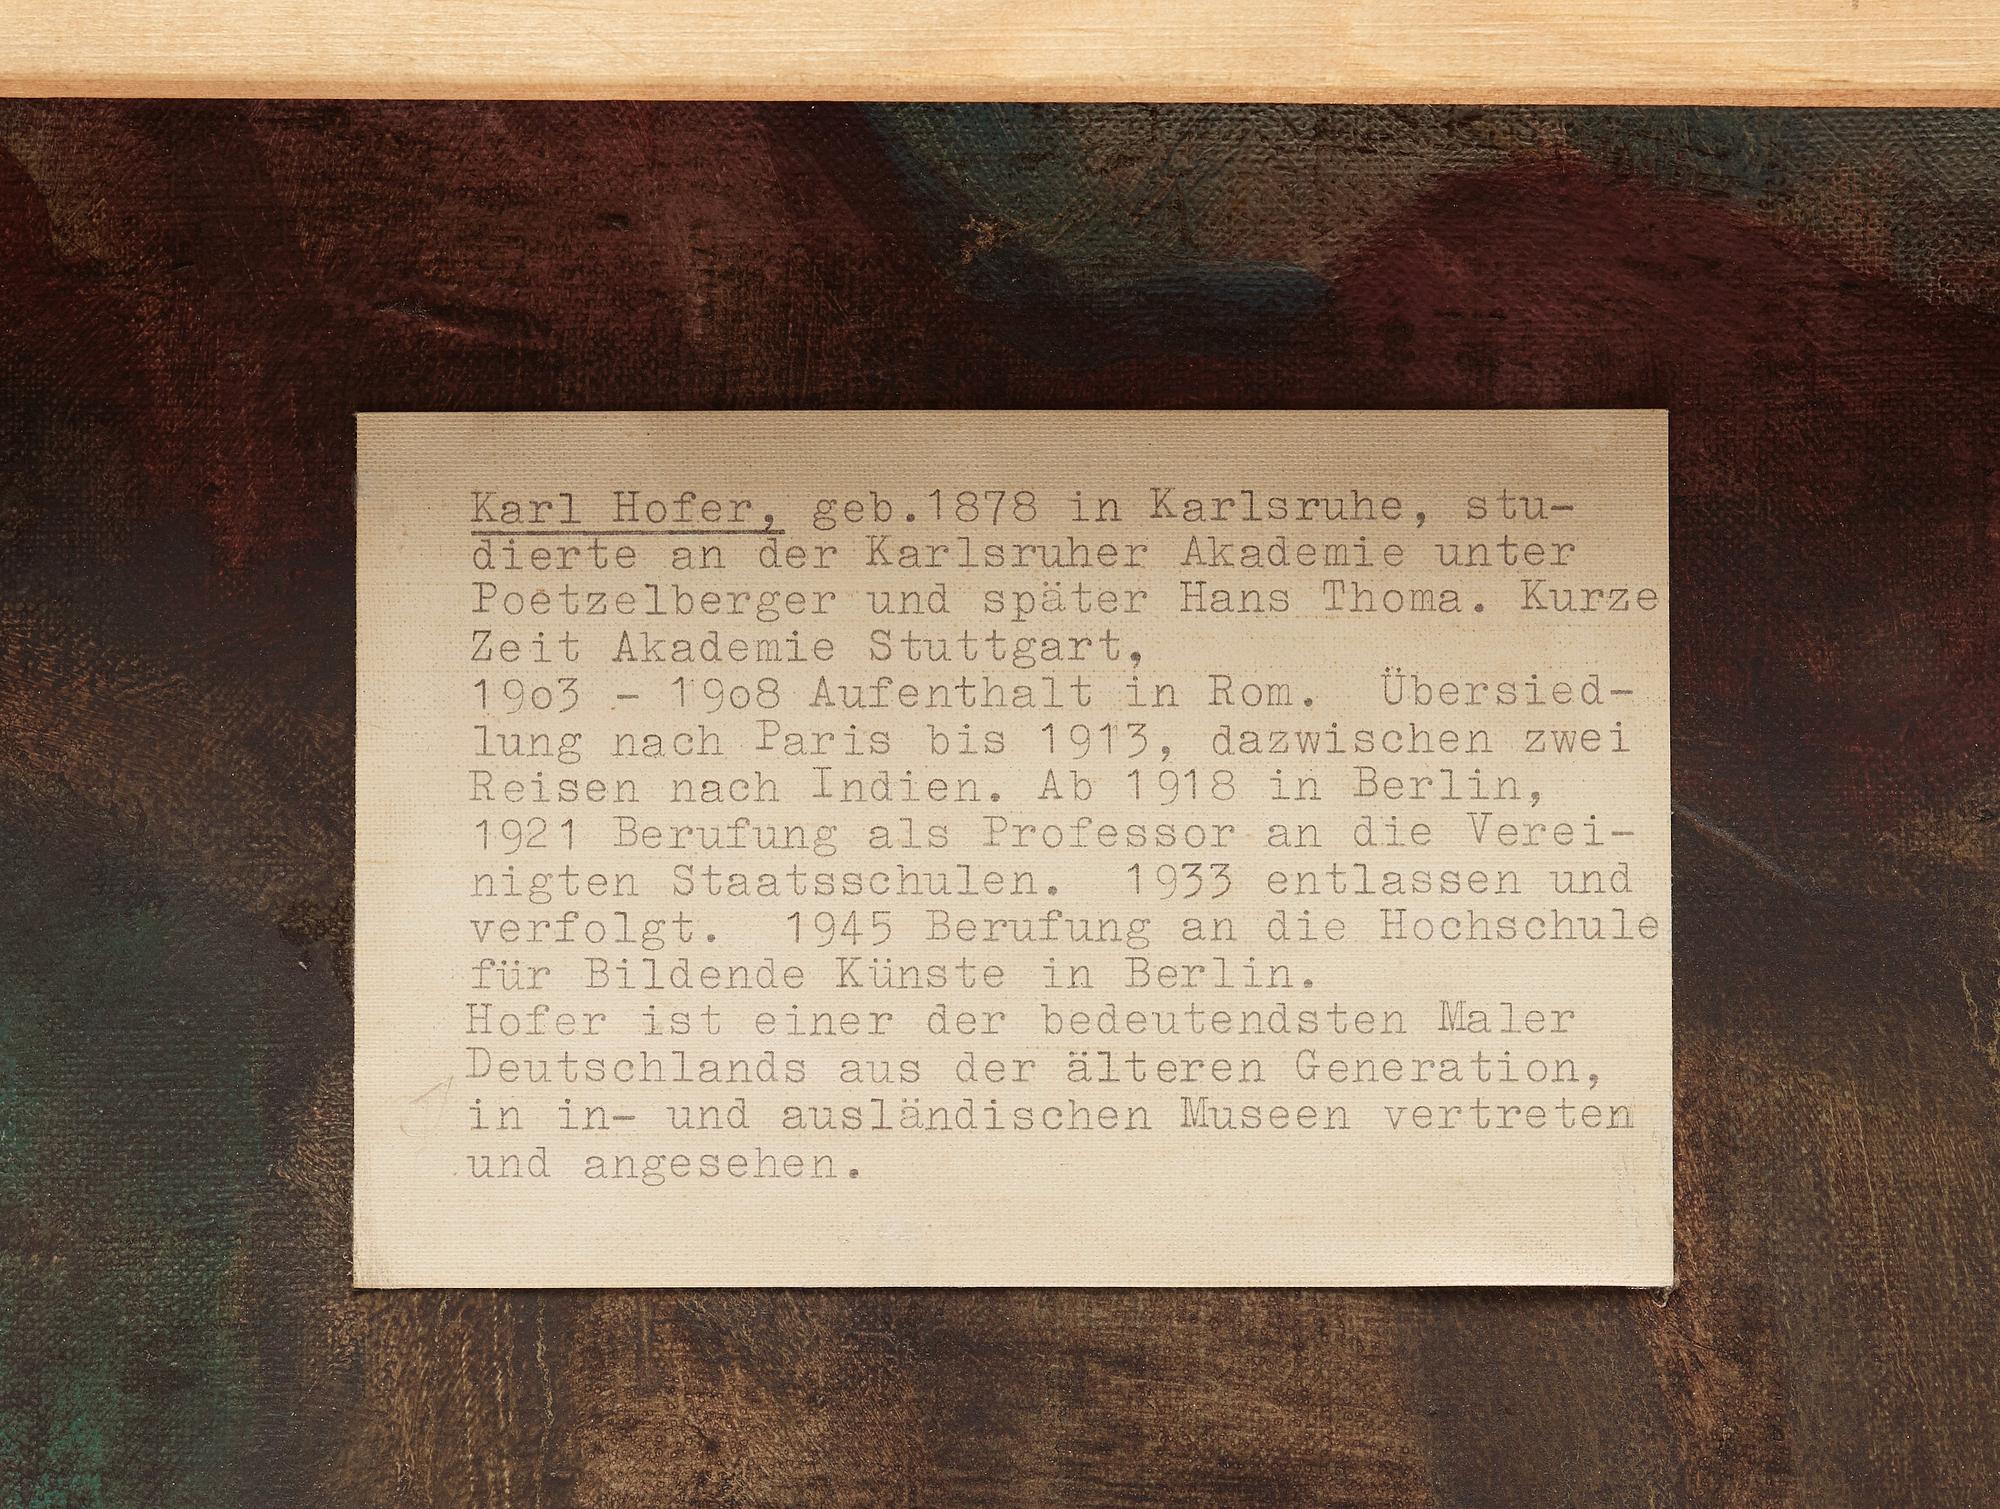 Karl Hofer, geb.1878 in Karlsruhe, stu-
dierte an der Karlsruher Akademie unter
Poetzelberger und später Hans Thoma. Kurze
Zeit Akademie Stuttgart,
19o3 - 19o8 Aufenthalt in Rom.  Übersied-
lung nach Paris bis 1913, dazwischen zwei
Reisen nach Indien. Ab 1918 in Berlin,
1921 Berufung als Professor an die Verei-
nigten Staatsschulen.  1933 entlassen und
verfolgt.  1945 Berufung an die Hochschule
für Bildende Künste in Berlin.
Hofer ist einer der bedeutendsten Maler
Deutschlands aus der älteren Generation,
in in- und ausländischen Museen vertreten
und angesehen.